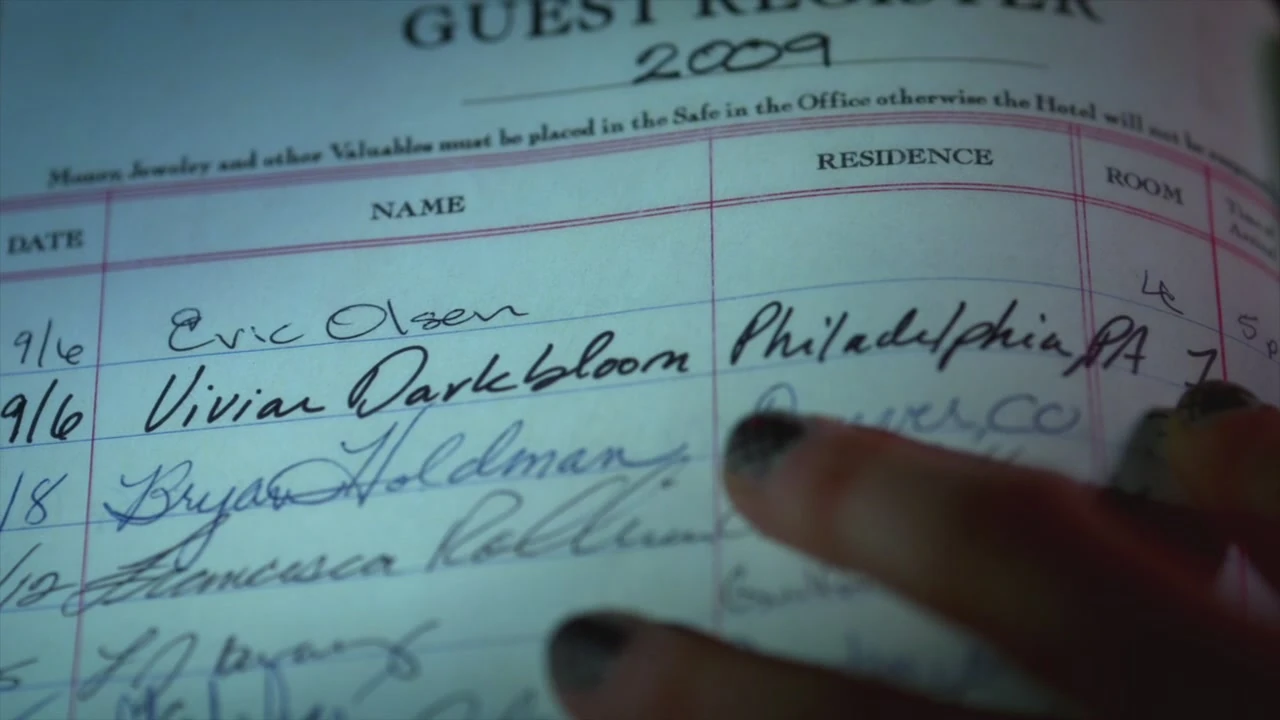 GUEST REGISTER
2009
Money, Jewelry and other Valuables must be placed in the Safe in the Office otherwise the Hotel will not be
DATE NAME RESIDENCE ROOM Time of Arrival
9/6 Eric Olsen 4 5 p
9/6 Vivian Darkbloom Philadelphia, PA 7
/8 Bryan Holdman Denver, CO
/12 Francesca